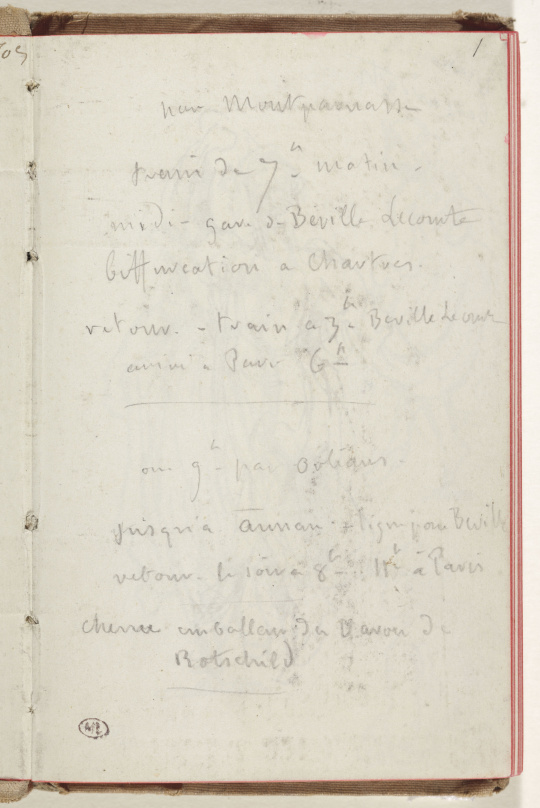 1
par Montparnasse
train de 7h matin -
midi - gare de Béville Lecomte
biffurcation a Chartres.
retour. - train a 3h Beville Lecomte
arrivé a Paris 6h
ou 9h par Orléans.
jusqu'à - ligne pour Béville
retour. le soir a 8h - 11h à Paris
emballeur du Baron de
Rotschild